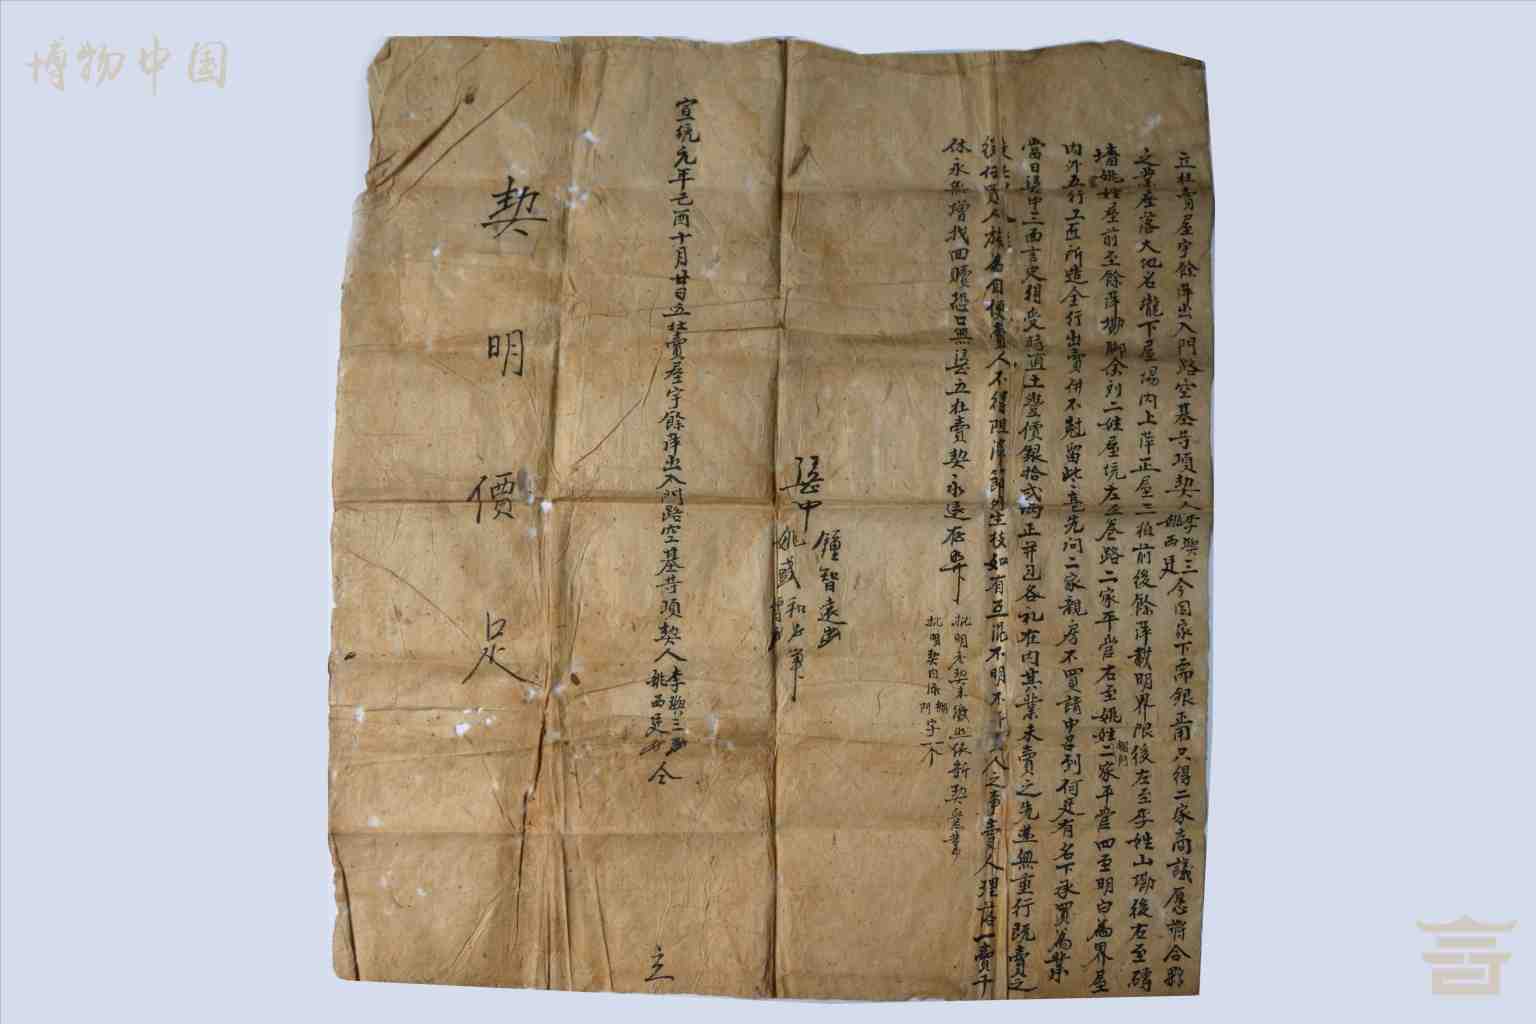 立杜賣屋宇餘萍出入門路空基等項契人李興三姚西廷今因家下需銀正用只得二家商議愿將合夥
之業座落大地名壠下屋場內上萍正屋三植前後餘萍載明界限後左至李姓山塝後右至磚
墻姚姓屋前至餘萍塝脚余列二姓屋坑左至巷路二家平管右至姚姓二家平管四至明白為界屋
欄門
內外五行工匠所造全行出賣併不尅留此毫先問二家親房不買請中召到何廷有名下承買為業
當日憑中三面言定得受時值土豐價銀拾弍両正并包各礼在內其業未賣之先並無重行既賣之
後任買人族為自便賣人不得阻滯節外生枝如有互混不明不干買人之事賣人理落一賣千
休永無增找回贖恐口無憑立杜賣契永遠存與
批明老契未繳出依新契管業
批明契內添欄門字一个
憑中
鍾智遠
姚盛和
宣統元年己酉十月廿日立杜賣屋宇餘萍出入門路空基等項契人李興三姚西廷仝
立
契明價足
博物中国